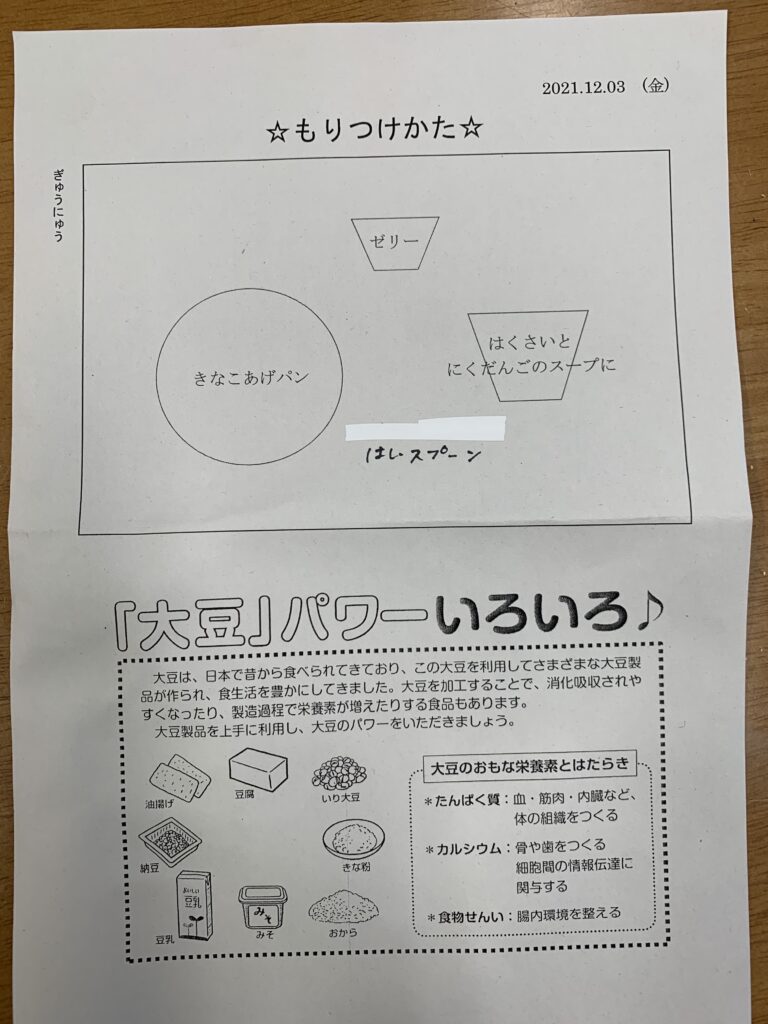 2021.12.03 (金)
☆もりつけかた☆
ぎゅうにゅう
ゼリー
きなこあげパン
はくさいと
にくだんごのスープに
はし スプーン
「大豆」パワーいろいろ♪
大豆は、日本で昔から食べられてきており、この大豆を利用してさまざまな大豆製
品が作られ、食生活を豊かにしてきました。大豆を加工することで、消化吸収されや
すくなったり、製造過程で栄養素が増えたりする食品もあります。
大豆製品を上手に利用し、大豆のパワーをいただきましょう。
油揚げ
豆腐
いり大豆
納豆
きな粉
おいしい
豆乳
豆乳
みそ
みそ
おから
大豆のおもな栄養素とはたらき
*たんぱく質:血・筋肉・内臓など、
体の組織をつくる
*カルシウム:骨や歯をつくる
細胞間の情報伝達に
関与する
*食物せんい:腸内環境を整える